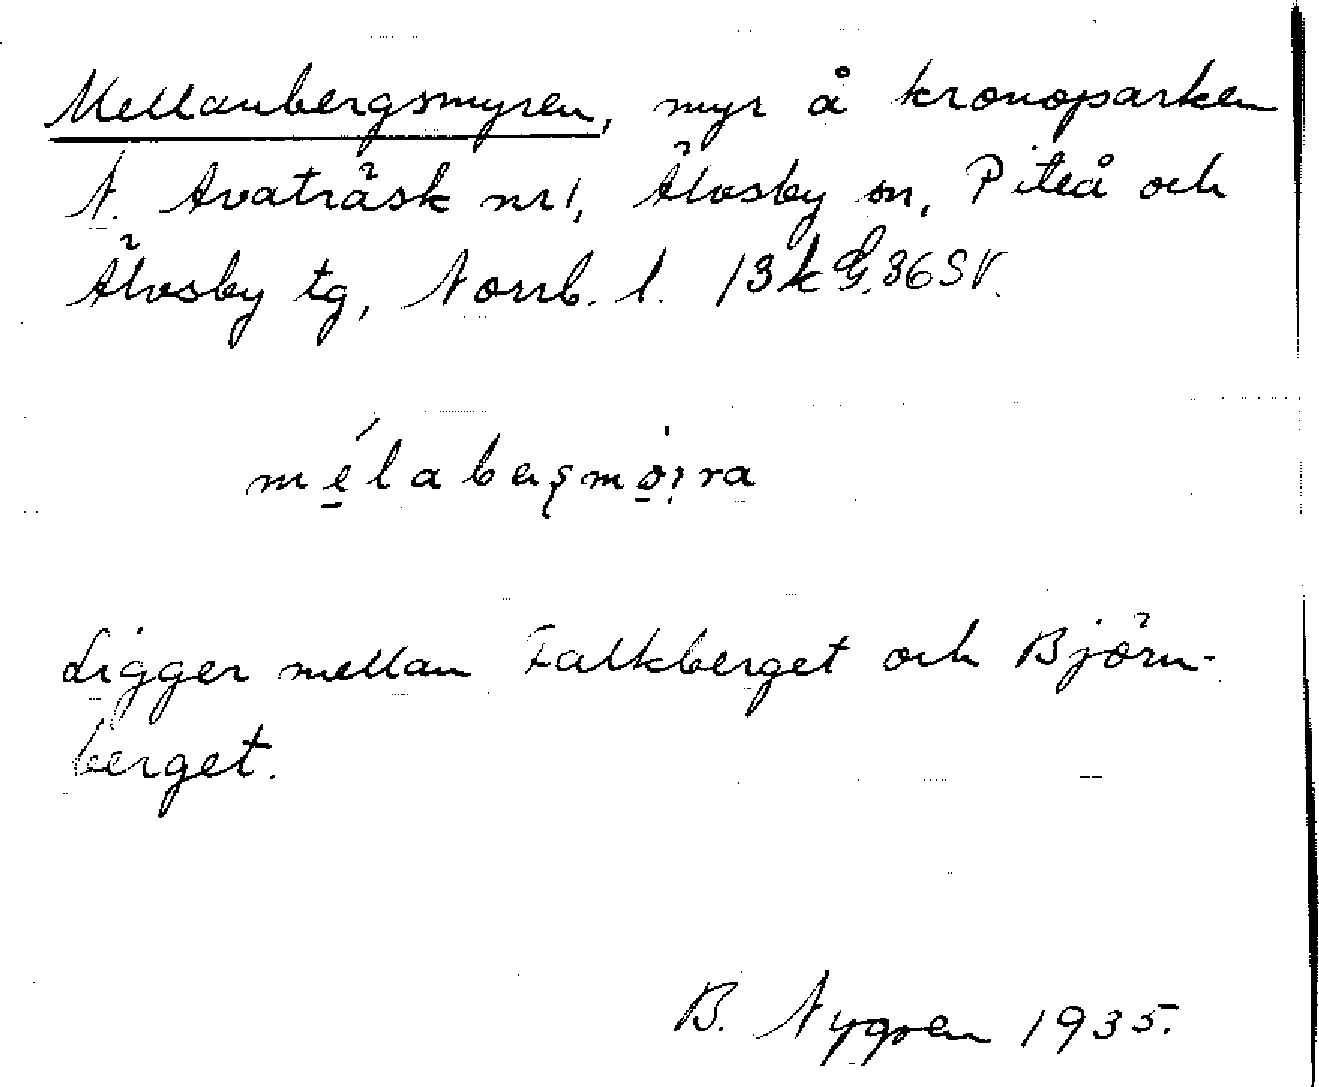 Mellanbergsmyren, myr å kronoparken
N. Avaträsk nr 1, Älvsby sn, Piteå och
Älvsby tg, Norrb. l. 13k G.36SV.
mélabeṣmọ́i̯ra
Ligger mellan Falkberget och Björn-
berget.
B. Nygren 1935.